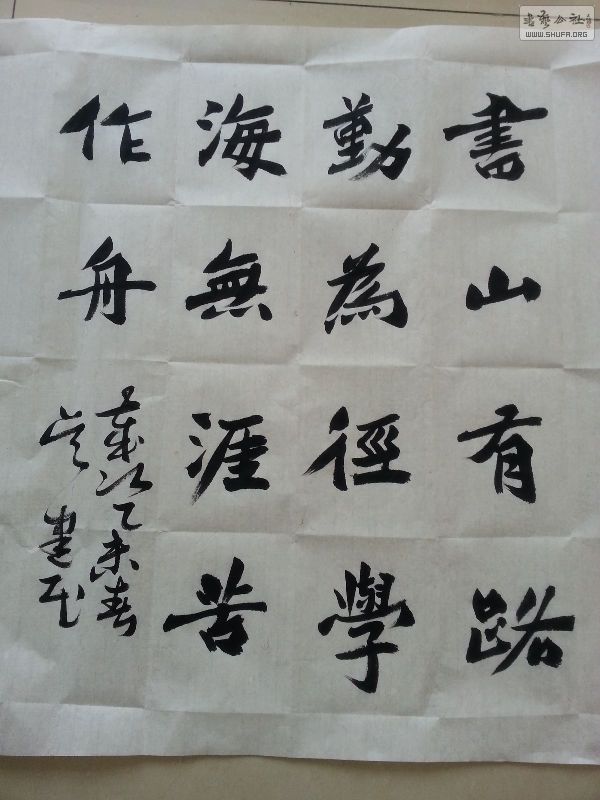 書山有路
勤為徑學
海無涯苦
作舟
歲次乙未春
書艺公社
WWW.SHUFA.ORG